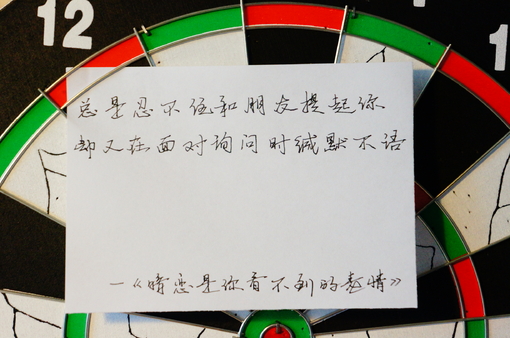 12
1
总是忍不住和朋友提起你
却又在面对询问时缄默不语
—《暗恋是你看不到的表情》